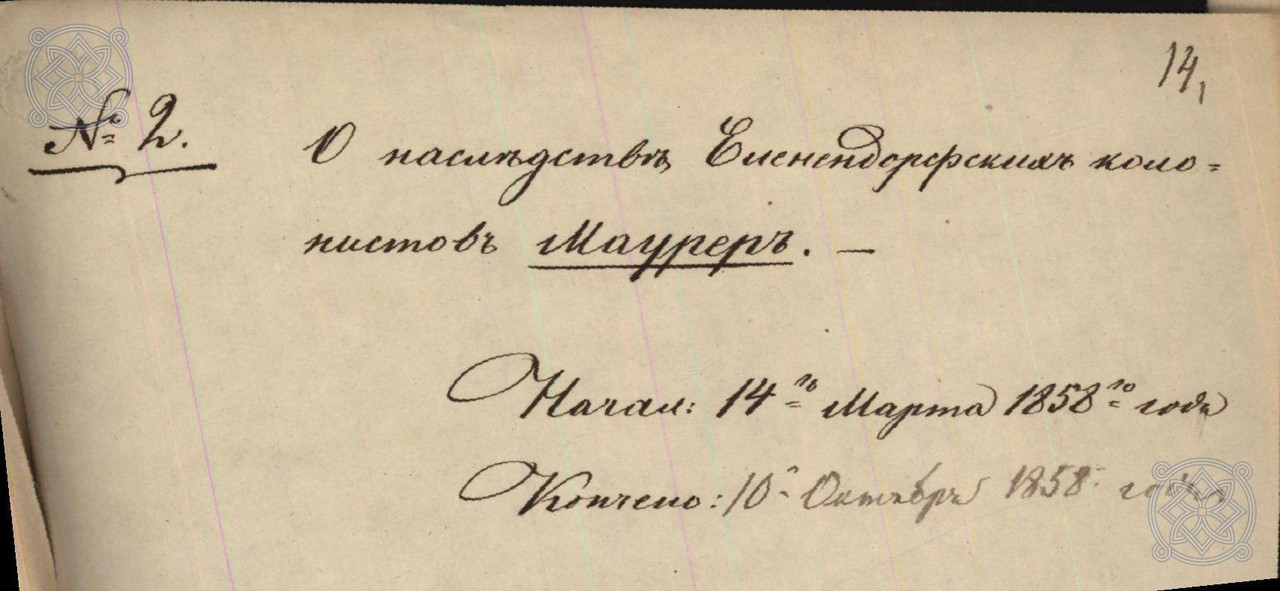 14,
№ 2.
О наслѣдствѣ Еленендорфскихъ коло=
нистовъ Мауреръ. —
Начал: 14го Марта 1858го года
Кончено: 10 Октября 1858 года